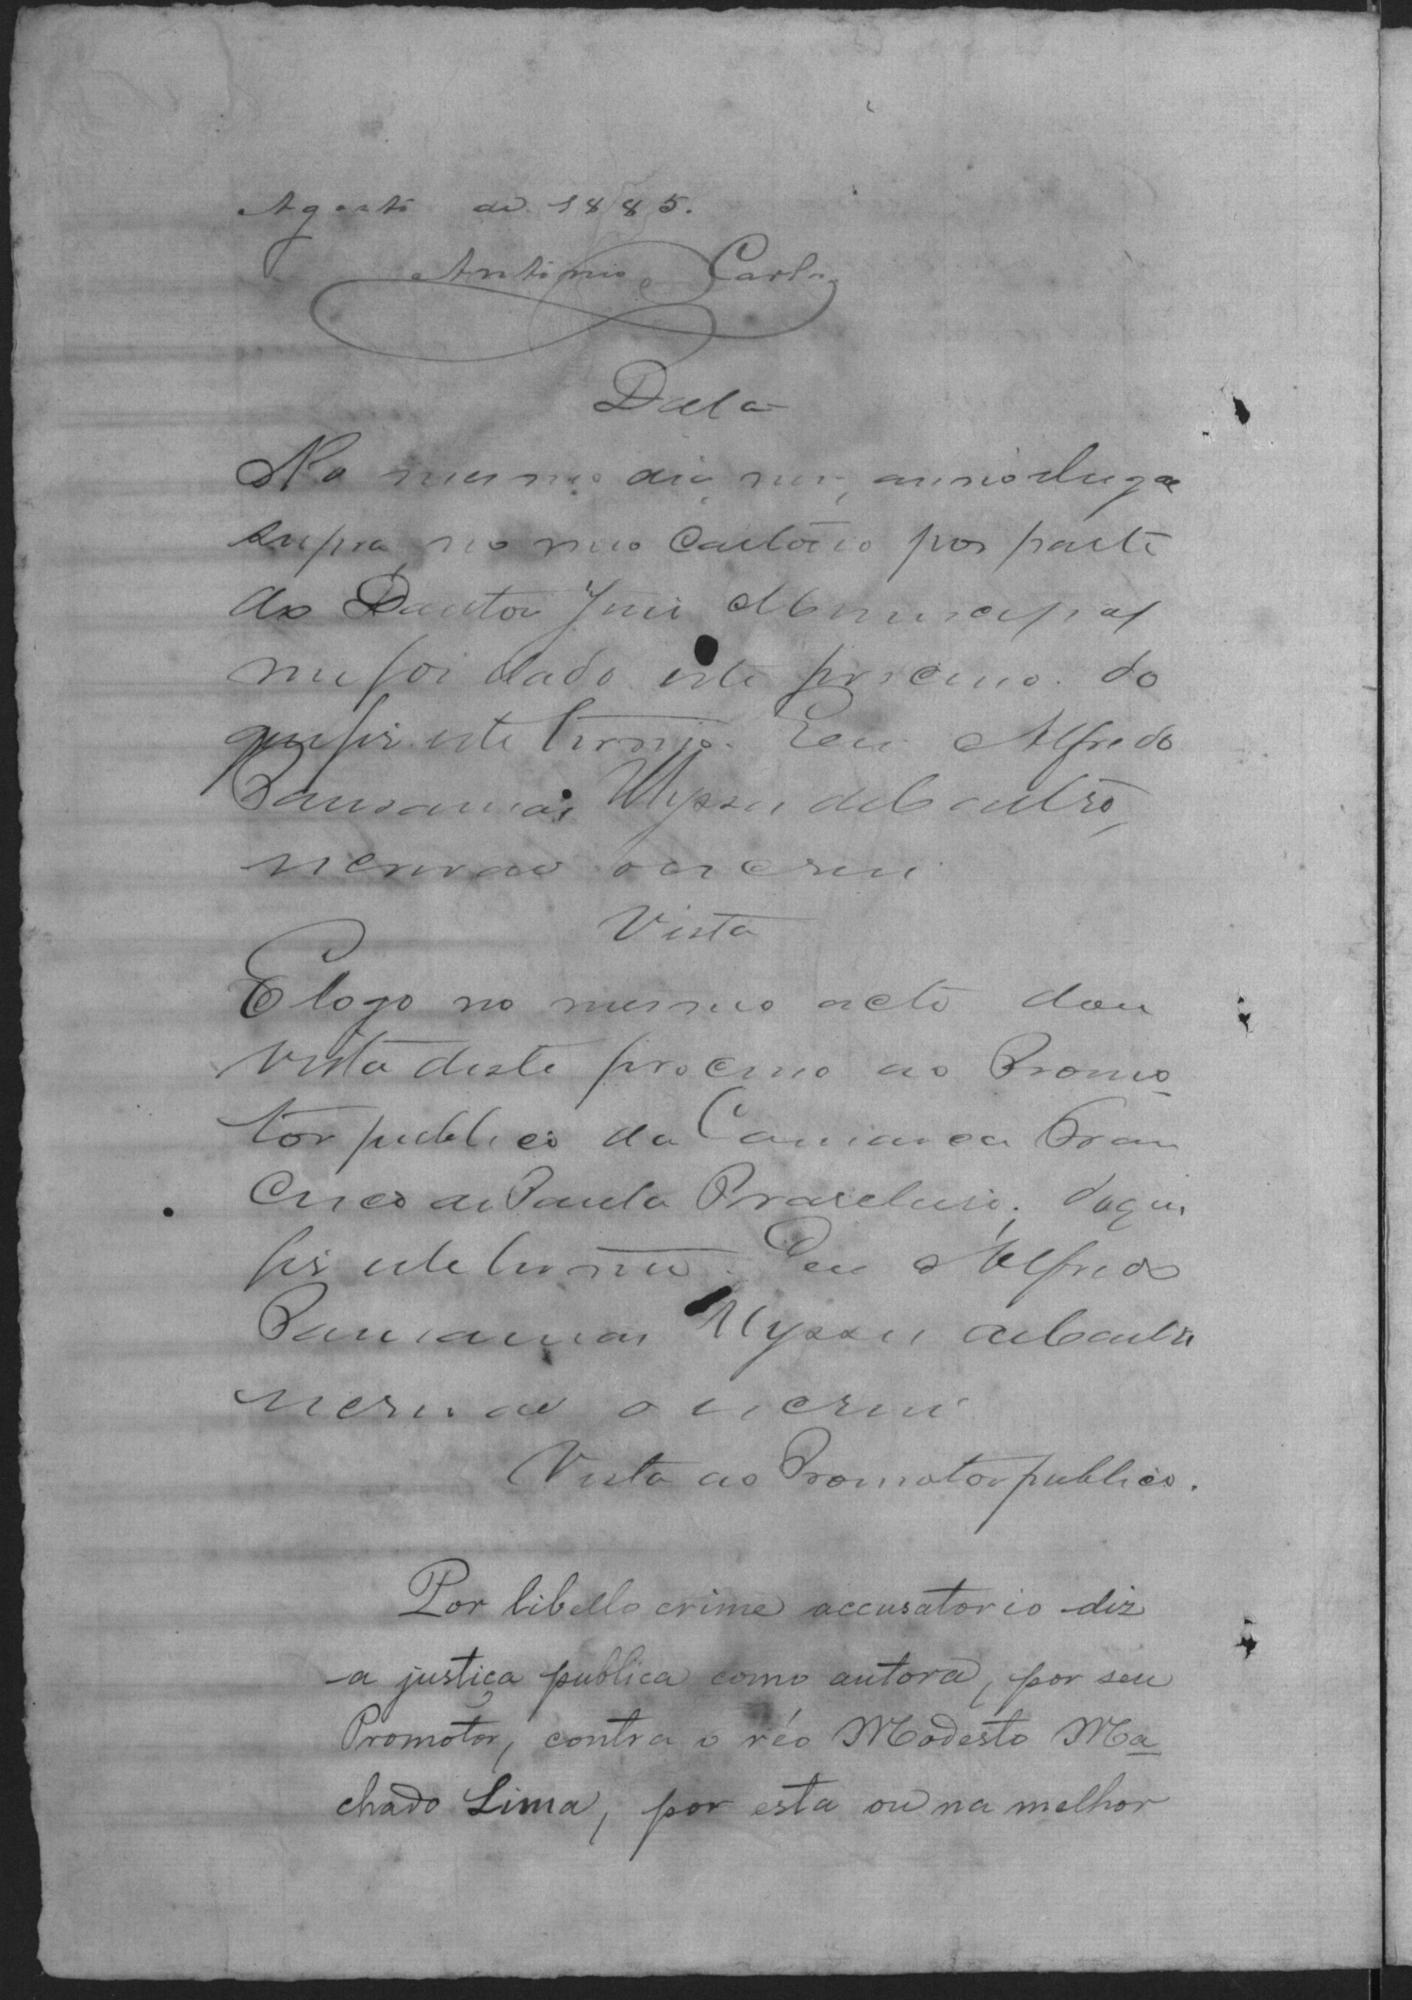 Agosto de 1885.
Antonio Carlos
Data
No mesmo dia, mez, anno e lugar
supra, no meu Cartorio por parte
do Doutor Juiz Municipal
me foi dado este processo. do
que fiz este termo. Eu Alfredo
Pausanias Ulysses de Castro,
escrivão o escrevi
Vista
E logo no mesmo acto dou
vista deste processo ao Promo
tor publico da Comarca Fran
cisco de Paula; do que
fiz este termo. Eu Alfredo
Pausanias Ulysses de Castro
escrivão o escrevi
Vista ao Promotor publico.
Por libello crime accusatorio diz
a justiça publica como autora, por seu
Promotor, contra o réo Modesto Ma
chado Lima, por esta ou na melhor